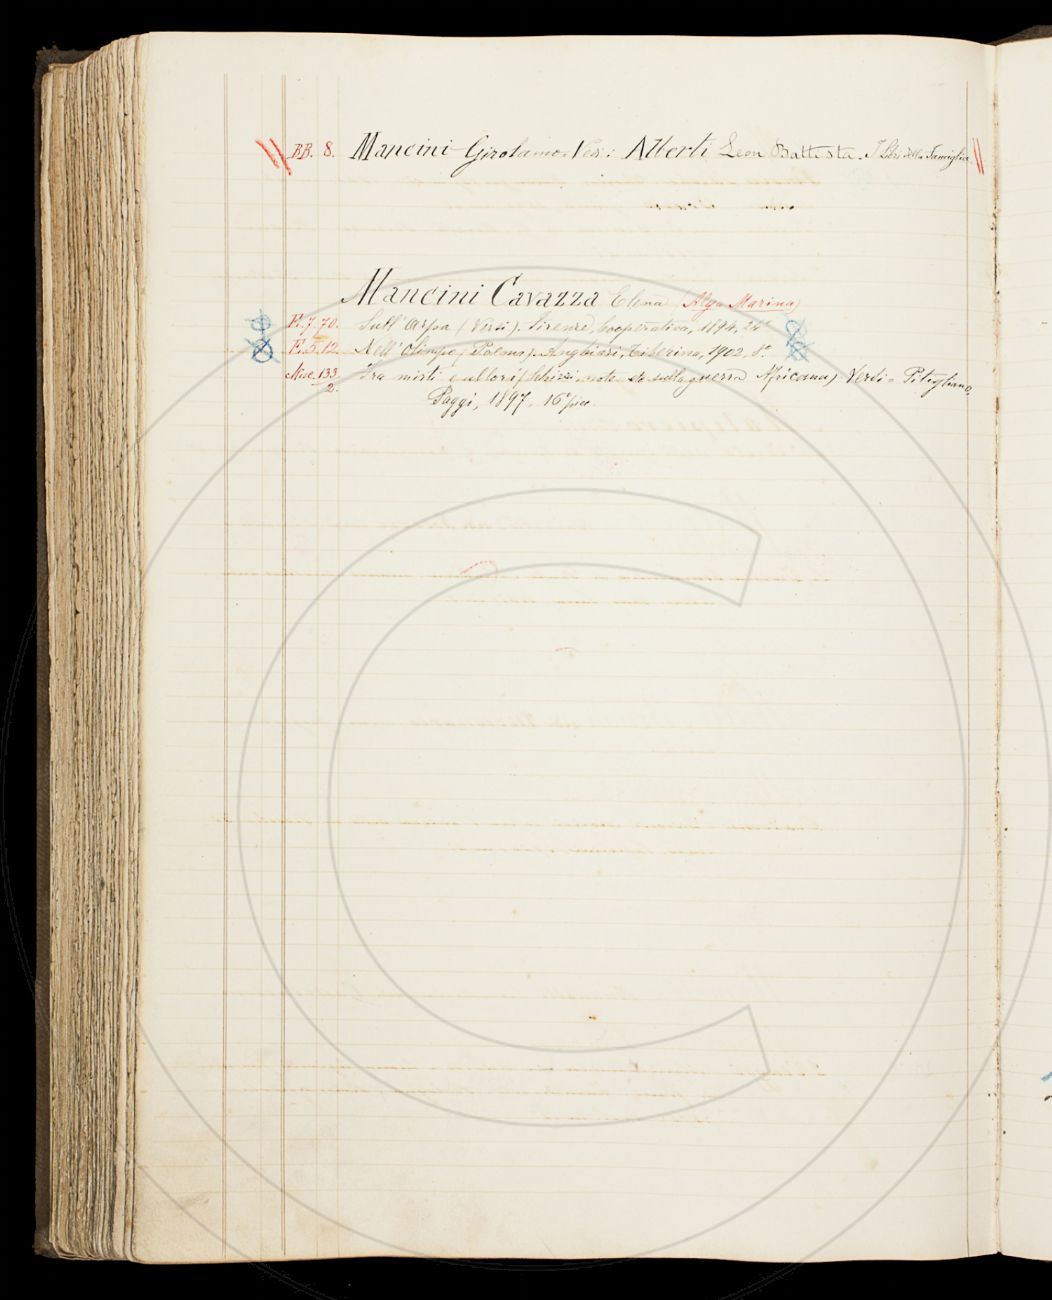 BB. 8. Mancini Girolamo. Ved: Alberti Leon Battista. I Libri della Famiglia.
Mancini Cavazza Elena (Alga Marina)
F. 7. 70. Sull' Arpa (Versi). Firenze, Cooperativa, 1894. 24°
F. 5. 12. Nell' Olimpo, Palmo, Anghiari, Tiberina, 1902. 8°.
Misc. 133/2. Tra mirti e allori (Schizzi note sulla guerra Africana) Versi = Pitigliano,
Paggi, 1897. 16°